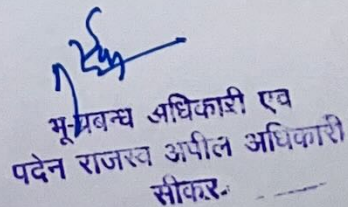 भू-प्रबन्ध अधिकारी एव
पदेन राजस्व अपील अधिकारी
सीकर.